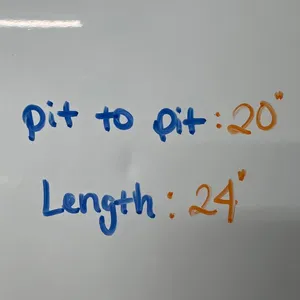 pit to pit : 20"
Length : 24"